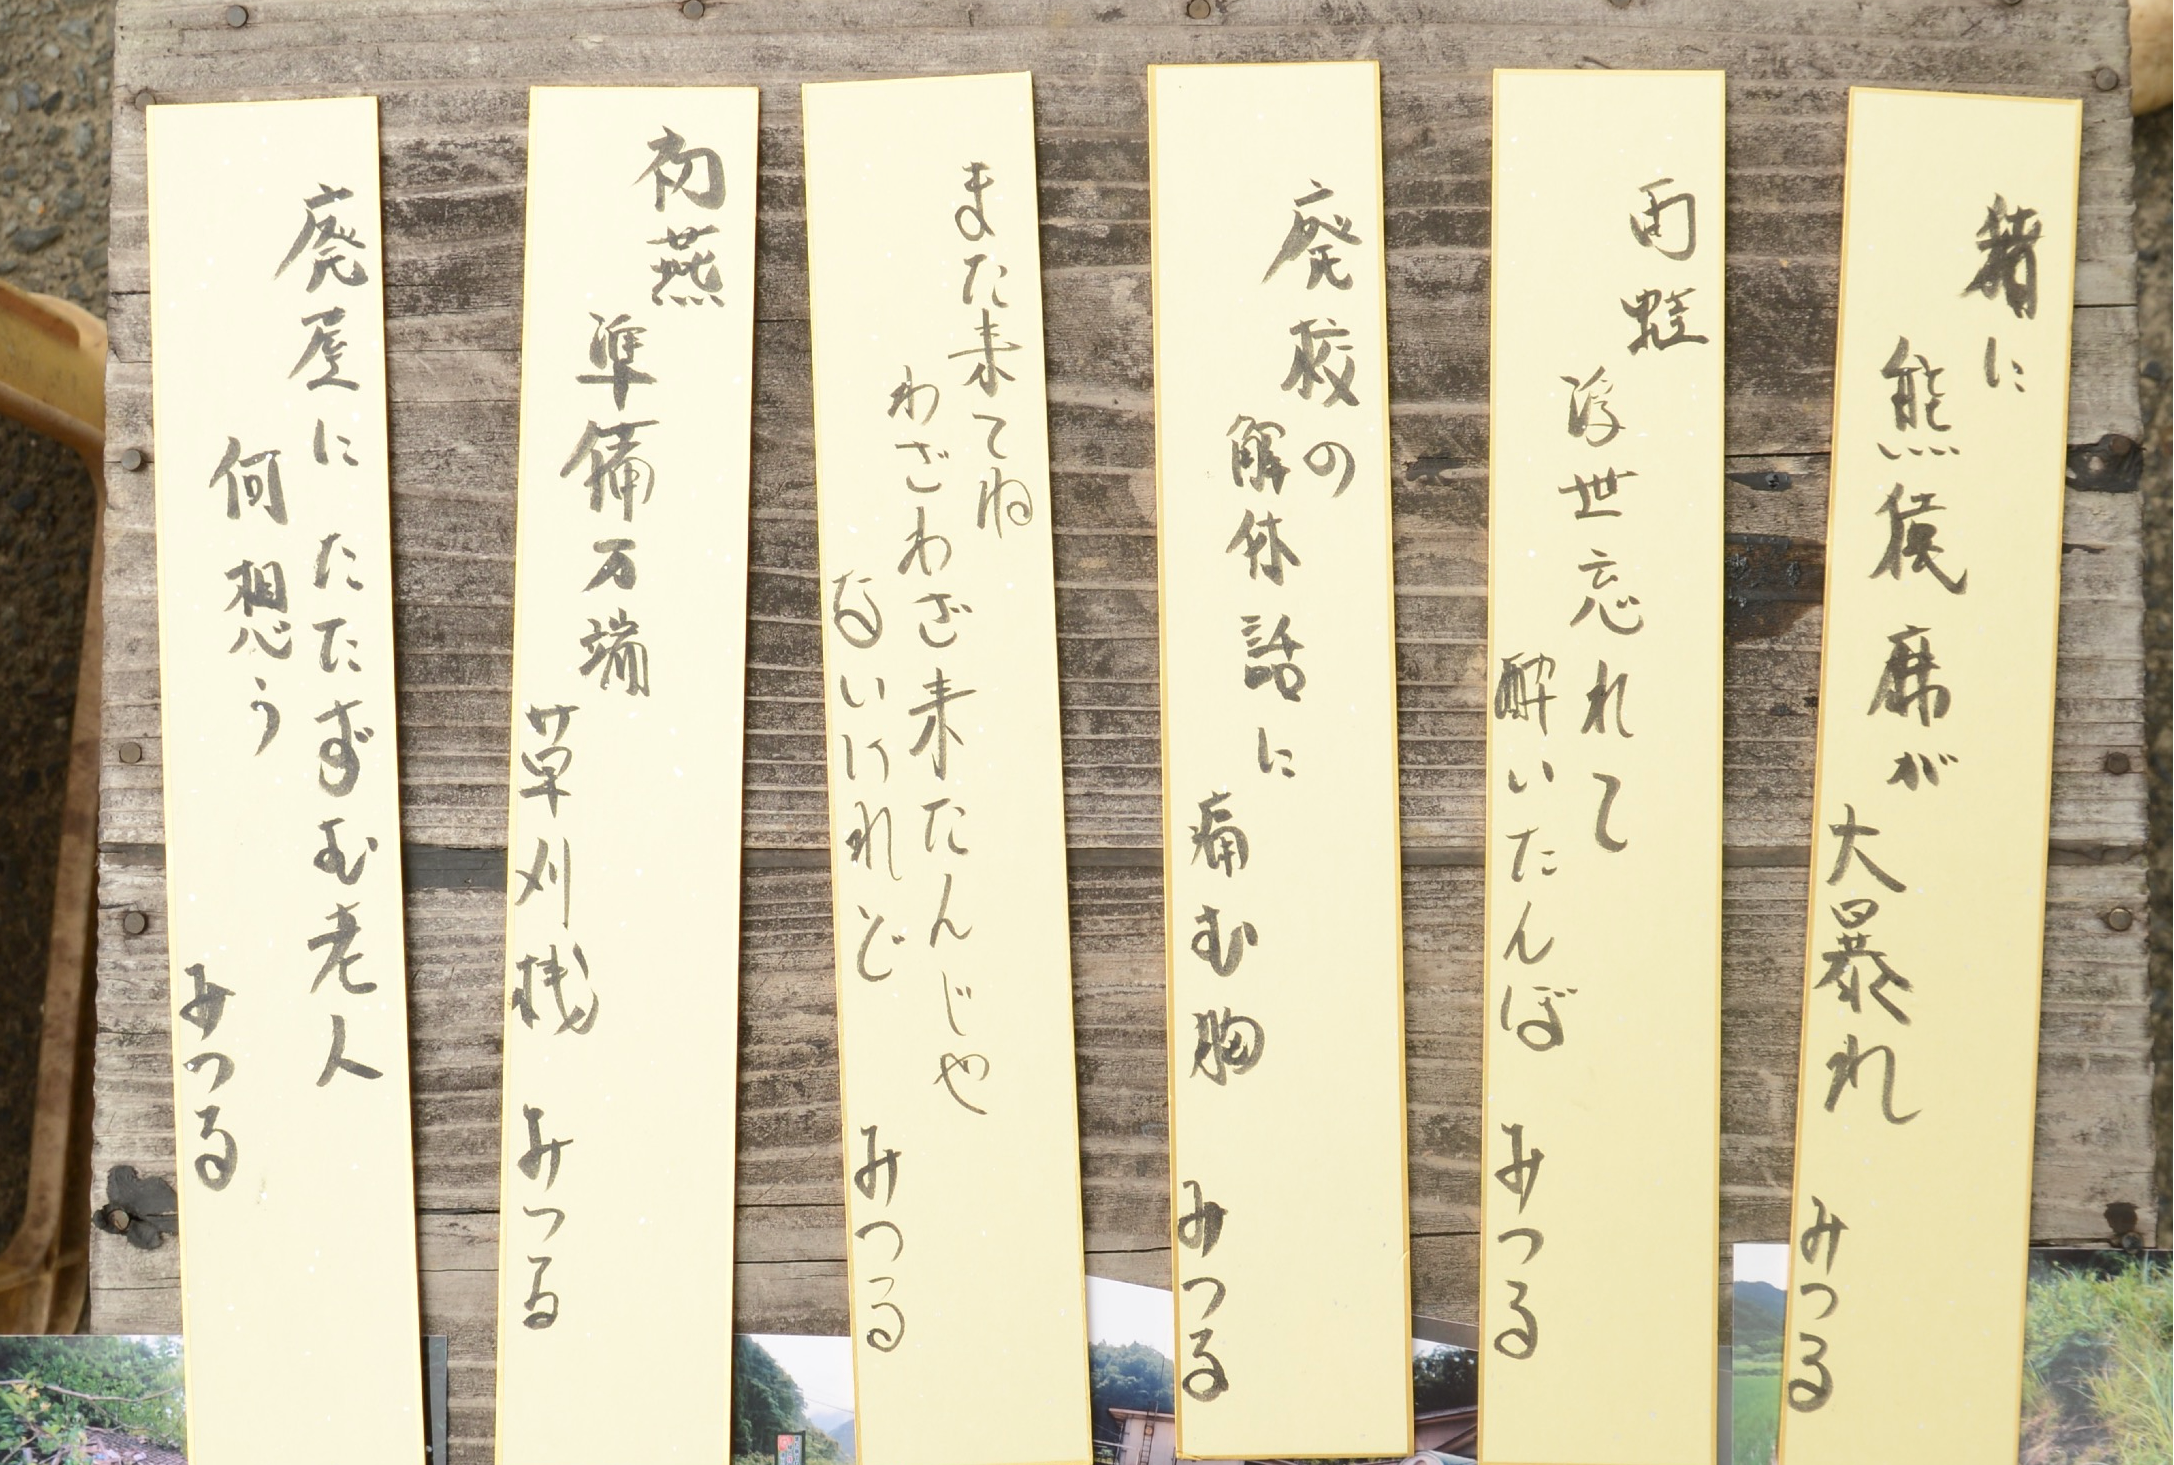 猪に
熊猿鹿が
大暴れ
みつる
雨蛙
浮世忘れて
酔いたんぼ
みつる
廃校の
解体話に
痛む胸
みつる
また来てね
わざわざ来たんじゃ
ないけれど
みつる
初燕
準備万端
草刈機
みつる
廃屋にたたずむ老人
何想う
みつる